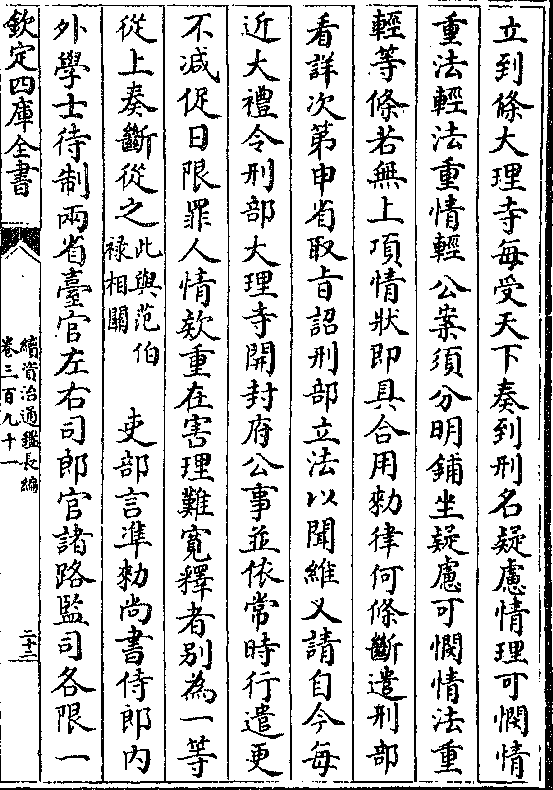 立到條大理寺每受天下奏到刑名疑慮情理可憫情
重法輕法重情輕公案須分明鋪坐疑慮可憫情法重
輕等條若無上項情狀即具合用勑律何條斷遣刑部
看詳次第申省取㫖詔刑部立法以聞維又請自今每
近大禮令刑部大理寺開封府公事並依常時行遣更
不减促日限罪人情欵重在害理難寛釋者别為一等
從上奏斷從之此與范伯祿相關 吏部言準勑尚書侍郎内
外學士待制兩省臺官左右司郎官諸路監司各限一
欽定四庫全書
續資治通鑑長編
卷三百九十一
二十三